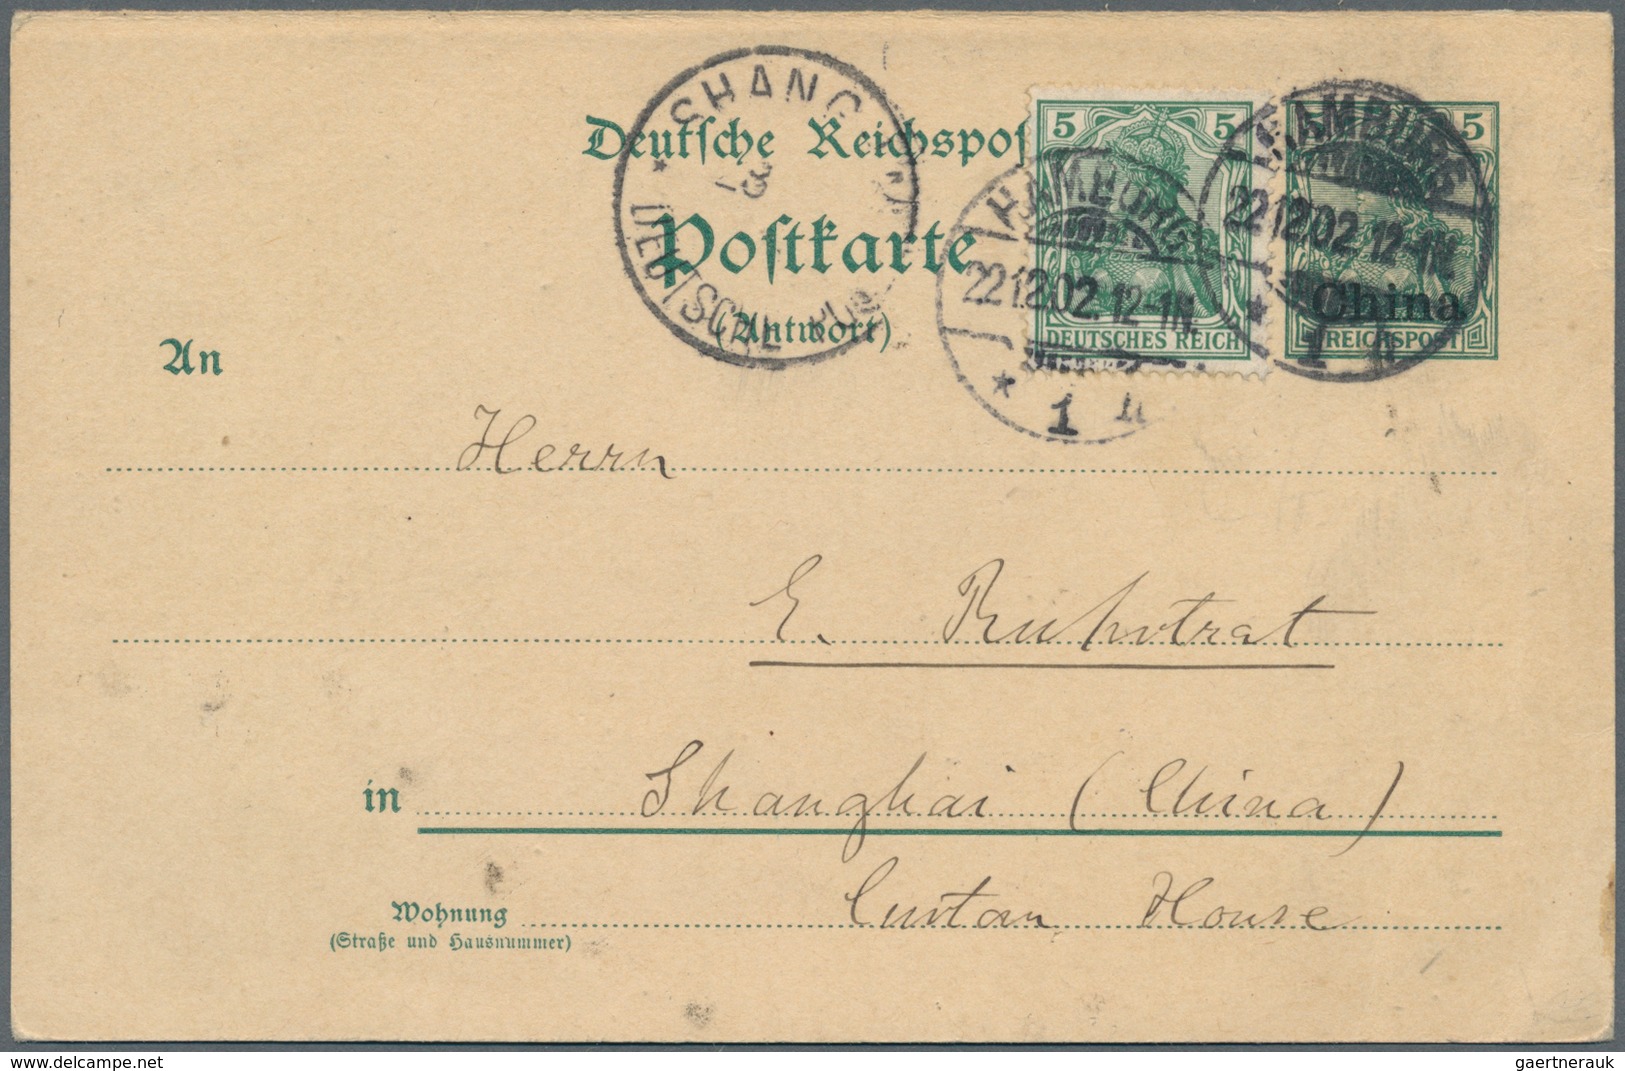 SHANG
DEUTSCHE POS
3
Deutsche Reichspos
Postkarte
(Antwort)
5 5
DEUTSCHES REICH
HAMBURG
22.12.02. 12-1N.
* 1
5
China
REICHSPOST
HAMBURG
22.12.02. 12-1N.
* 1
An
Herrn
E. Ruhstrat
in Shanghai (China)
Wohnung Custom House
(Straße und Hausnummer)
www.delcampe.net
gaertnerauk